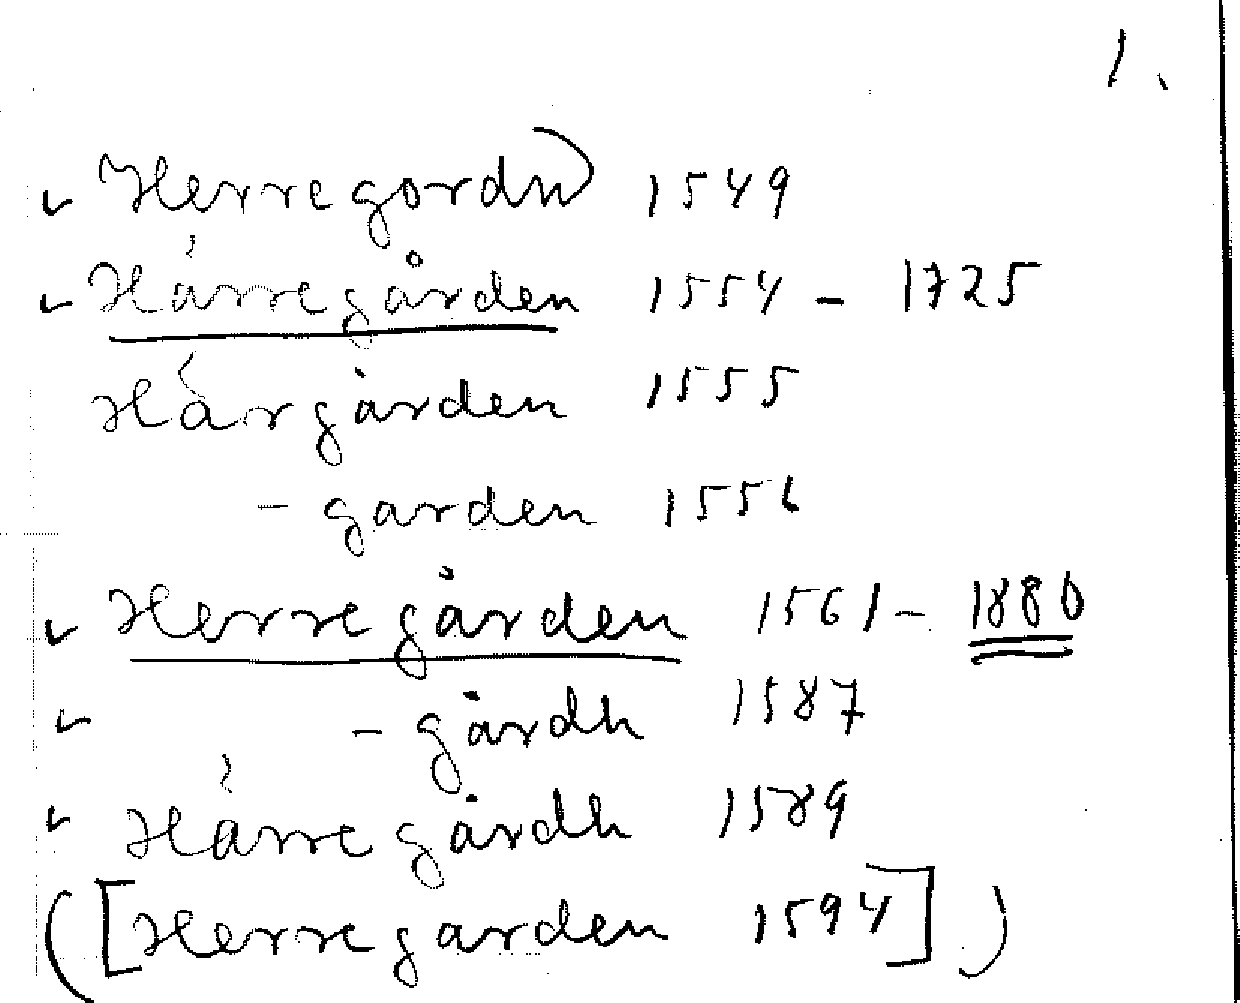 1.
✓ Herregordn) 1549
✓ Härregården 1554 – 1725
Härgården 1555
– garden 1556
✓ Herregården 1561 – 1880
✓ – gårdh 1587
✓ Härregårdh 1589
([Herregarden 1594])